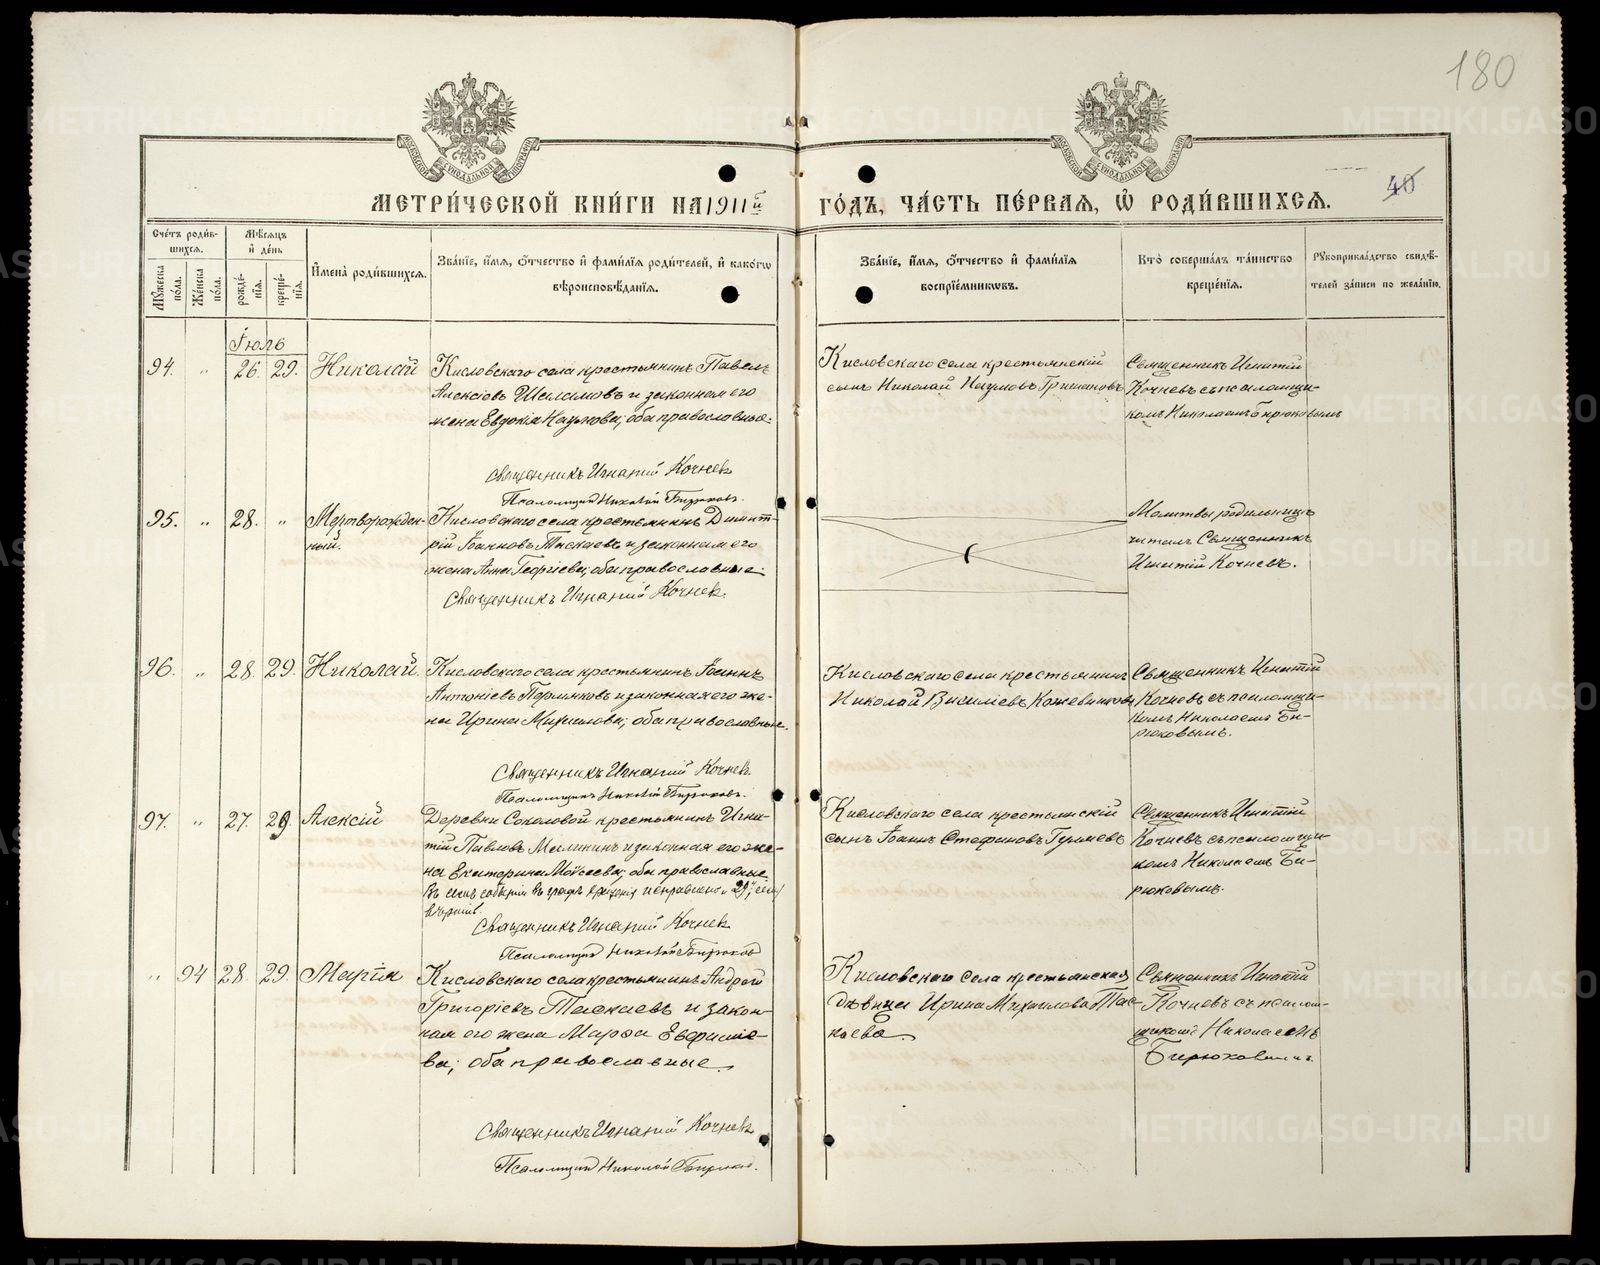 180
40
МЕТРИ́ЧЕСКОЙ КНИ́ГИ НА 1911й ГО́ДЪ, ЧА́СТЬ ПЕ́РВАЯ, Ѡ҆ РОДИ́ВШИХСЯ.
Сче́тъ роди́в-
шихся.
Мѣ́сяцъ
и҆ де́нь
Мꙋ́жеска по́ла.
Же́нска по́ла.
рожде́-
нїѧ.
креще́-
нїѧ.
И҆мена̀ роди́вшихсѧ.
Зва́нїе, и҆́мѧ, ѻ҆́тчество и҆ фами́лїѧ роди́телей, и҆ како́гѡ
вѣроисповѣ́данїѧ.
Зва́нїе, и҆́мѧ, ѻ҆́тчество и҆ фами́лїѧ
воспрїе́мникѡвъ.
Кто̀ соверша́лъ та́инство
креще́нїѧ.
Рꙋкоприкла́дство свидѣ́-
телей за́писи по жела́нїю.
Іюль
94. „ 26. 29. Николай
Кисловскаго села крестьянинъ Павелъ
Алексіевъ Шаламовъ и законная его
жена Евдокія Наумова; оба православные.
Священникъ Игнатій Кочнев
Псаломщик Николай Бирюков.
Кисловскаго села крестьянскій
сынъ Николай Наумовъ Гришановъ
Священник Игнатій
Кочневъ съ псаломщи-
комъ Николаемъ Бирюковымъ
95. „ 28. „ Мертворожден-
ный.
Кисловскаго села крестьянинъ Димит-
рій Іоанновъ Таскаевъ и законная его
жена Анна Георгіева; оба православные.
Священникъ Игнатий Кочнев.
Молитвы родильницѣ
читалъ Священникъ
Игнатій Кочневъ.
96. „ 28. 29. Николай.
Кисловскаго села крестьянинъ Іоаннъ
Антоніевъ и законная его же-
на Ирина Михаилова; оба православные.
Священникъ Игнатий Кочнев.
Псаломщикъ Николай Бирюковъ.
Кисловскаго села крестьянинъ
Николай Василіевъ Кожевниковъ
Священникъ Игнатій
Кочневъ съ псаломщи-
комъ Николаемъ Би-
рюковымъ.
97. „ 27. 29. Алексій
Деревни Соколовой крестьянинъ Игна-
тій Павловъ Малыкинъ и законная его же-
на Екатерина Моѵсеева; оба православные.
Въ семъ событіи въ графѣ крещенія исправленное „29“, сему
вѣрить.
Священникъ Игнатий Кочнев
Псаломщик Николай Бирюков
Кисловскаго села крестьянскій
сынъ Іоаннъ Стефановъ Гуляевъ
Священникъ Игнатій
Кочневъ съ псаломщи-
комъ Николаемъ Би-
рюковымъ.
„ 94 28. 29. Марія
Кисловскаго села крестьянинъ Андрей
Григоріевъ Таскаевъ и закон-
ная его жена Марѳа Евфиміе-
ва; оба православные.
Священникъ Игнатий Кочневъ
Псаломщик Николай Бирюков.
Кисловскаго села крестьянская
дѣвица Ирина Михаилова Тас-
каева
Священникъ Игнатій
Кочневъ съ псалом-
щикомъ Николаемъ
Бирюковымъ
METRIKI.GASO-URAL.RU